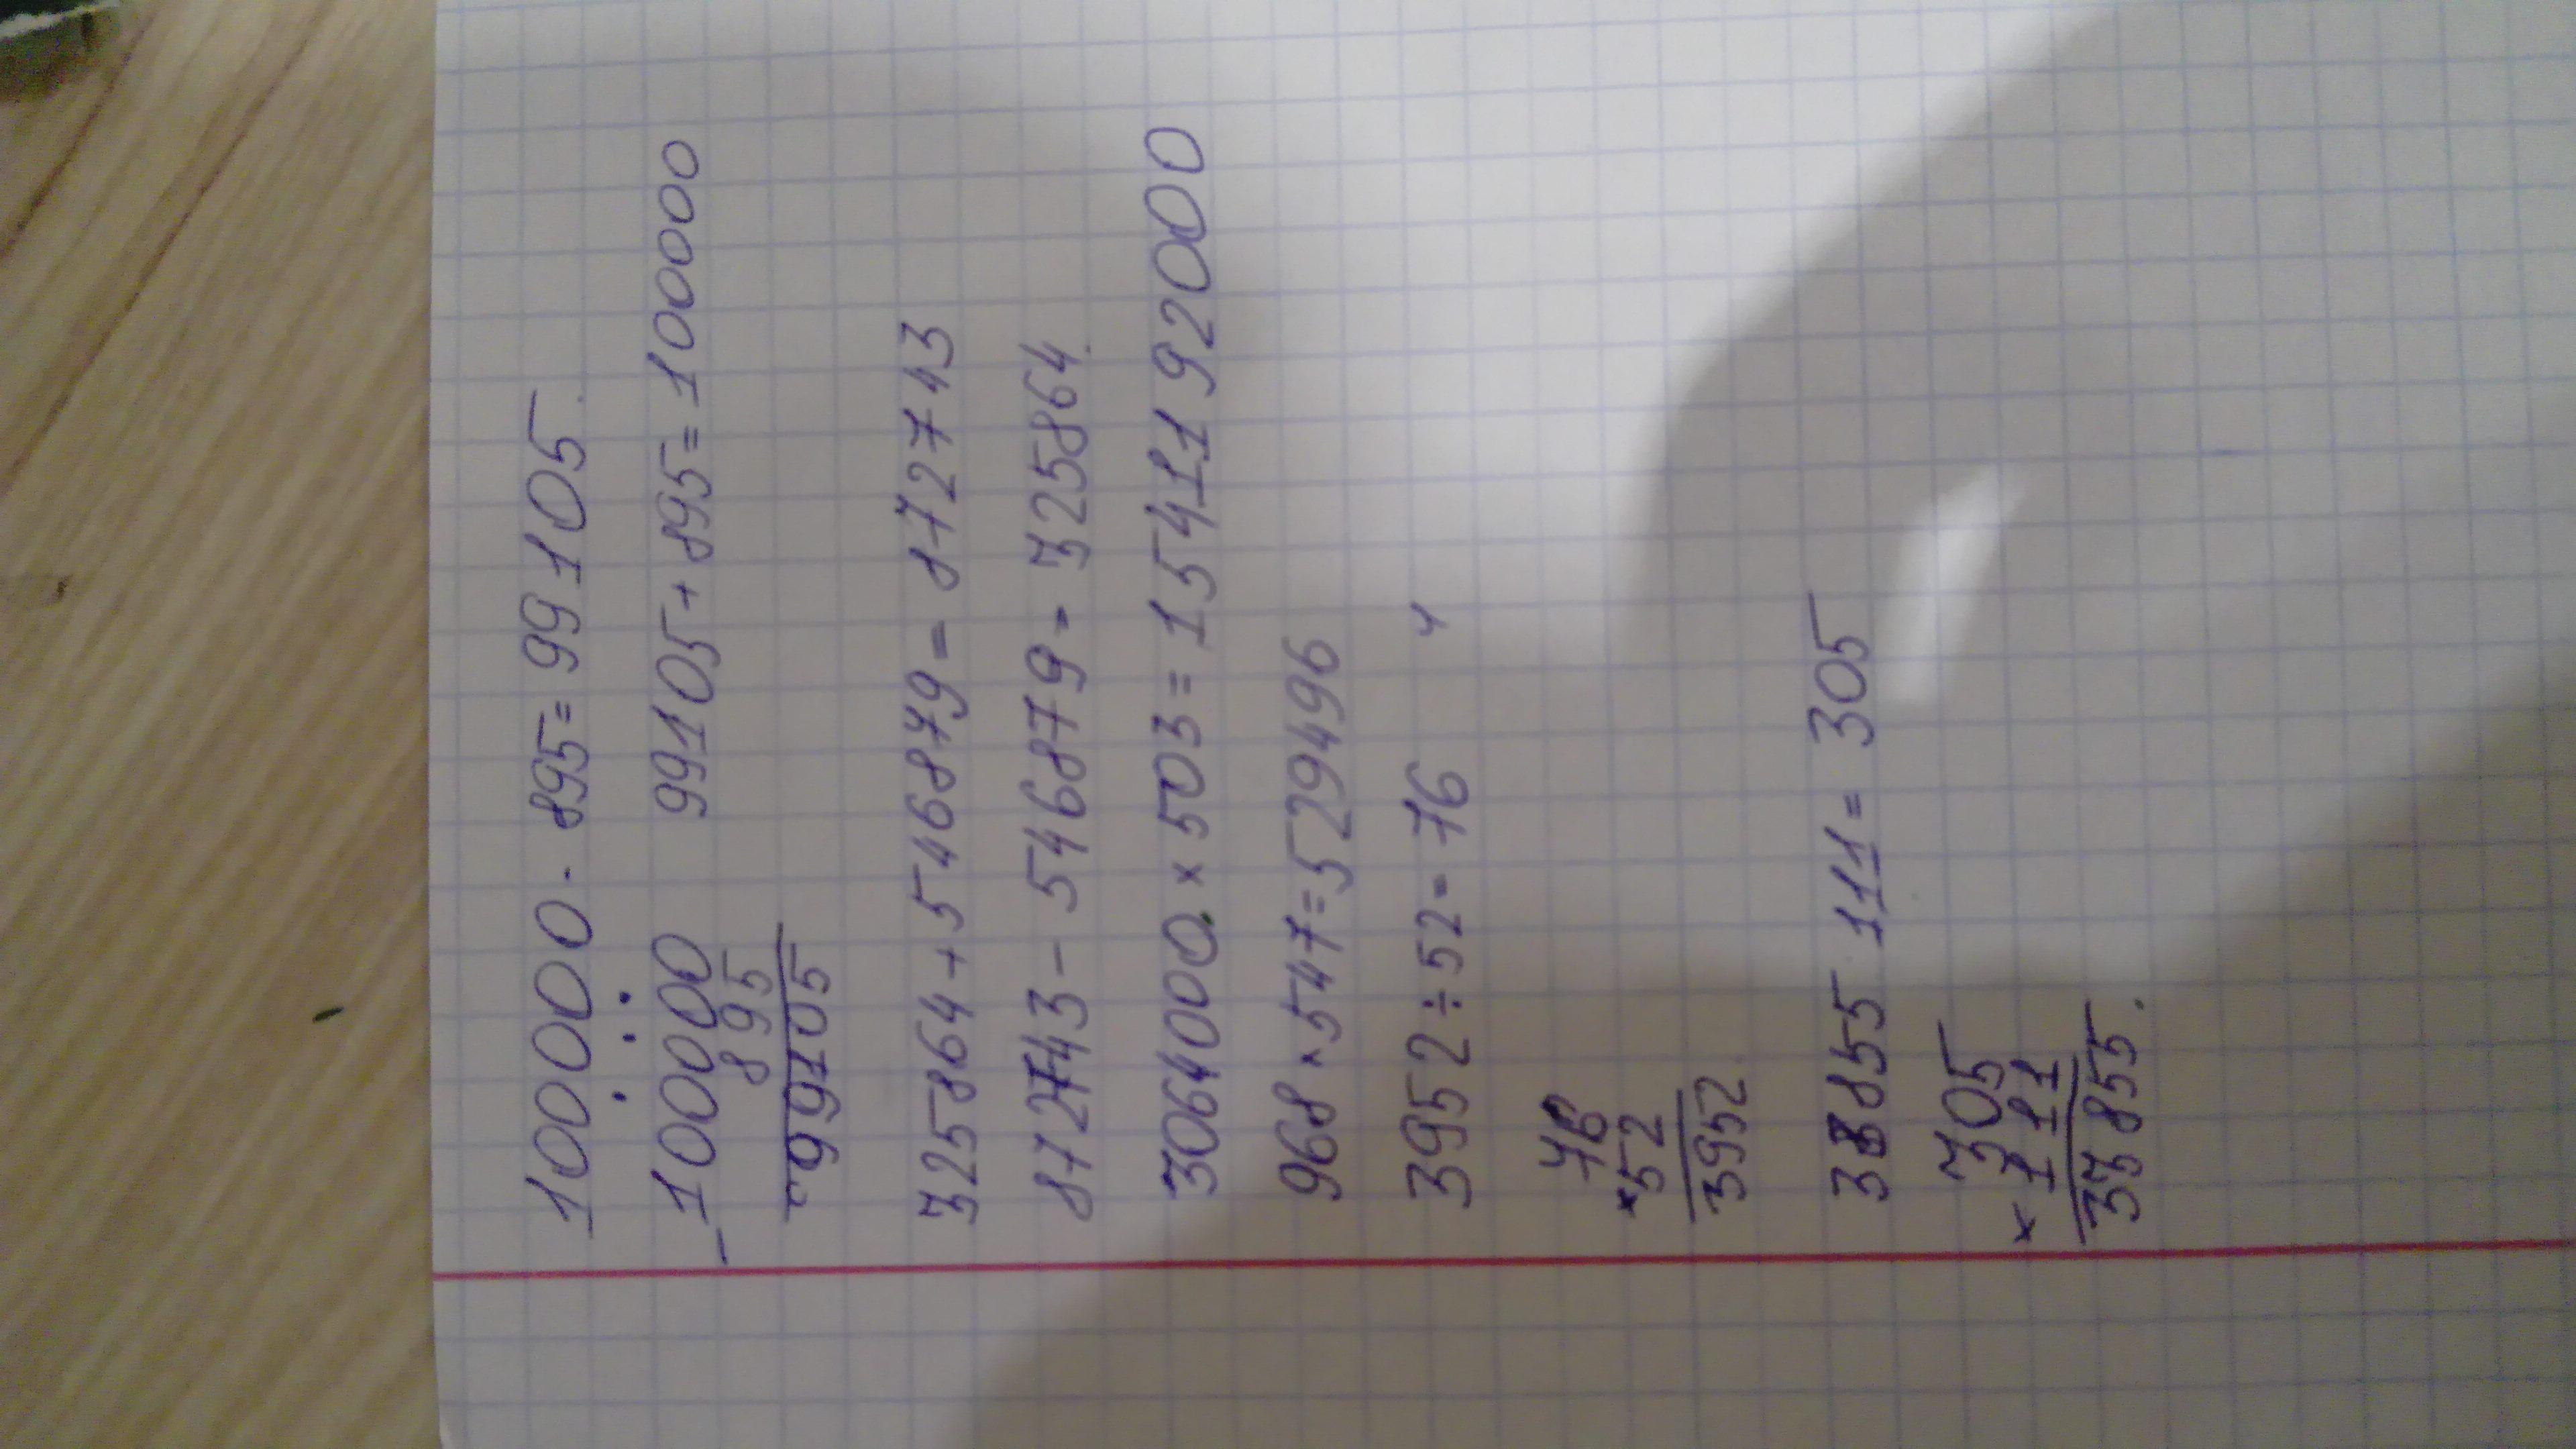 100000 - 895 = 99105.
100000   99105 + 895 = 100000
895
99105
325864 + 546879 = 872743
872743 - 546879 = 325864.
3064000 × 503 = 1541192000
968 × 547 = 529496
3952 ÷ 52 = 76
76
×52
3952
33855 111 = 305
305
× 111
33855.